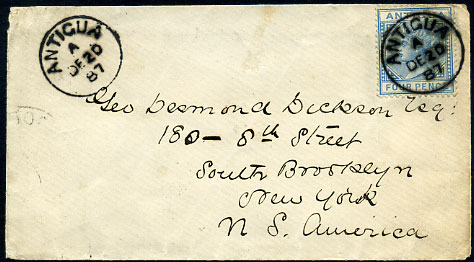 ANTIGUA
A
DE 20
87
ANTIGUA
FOUR PENCE
ANTIGUA
A
DE 20
87
Geo Desmond Dickson Esq:
180 - 8th Street
South Brooklyn
New York
N S. America